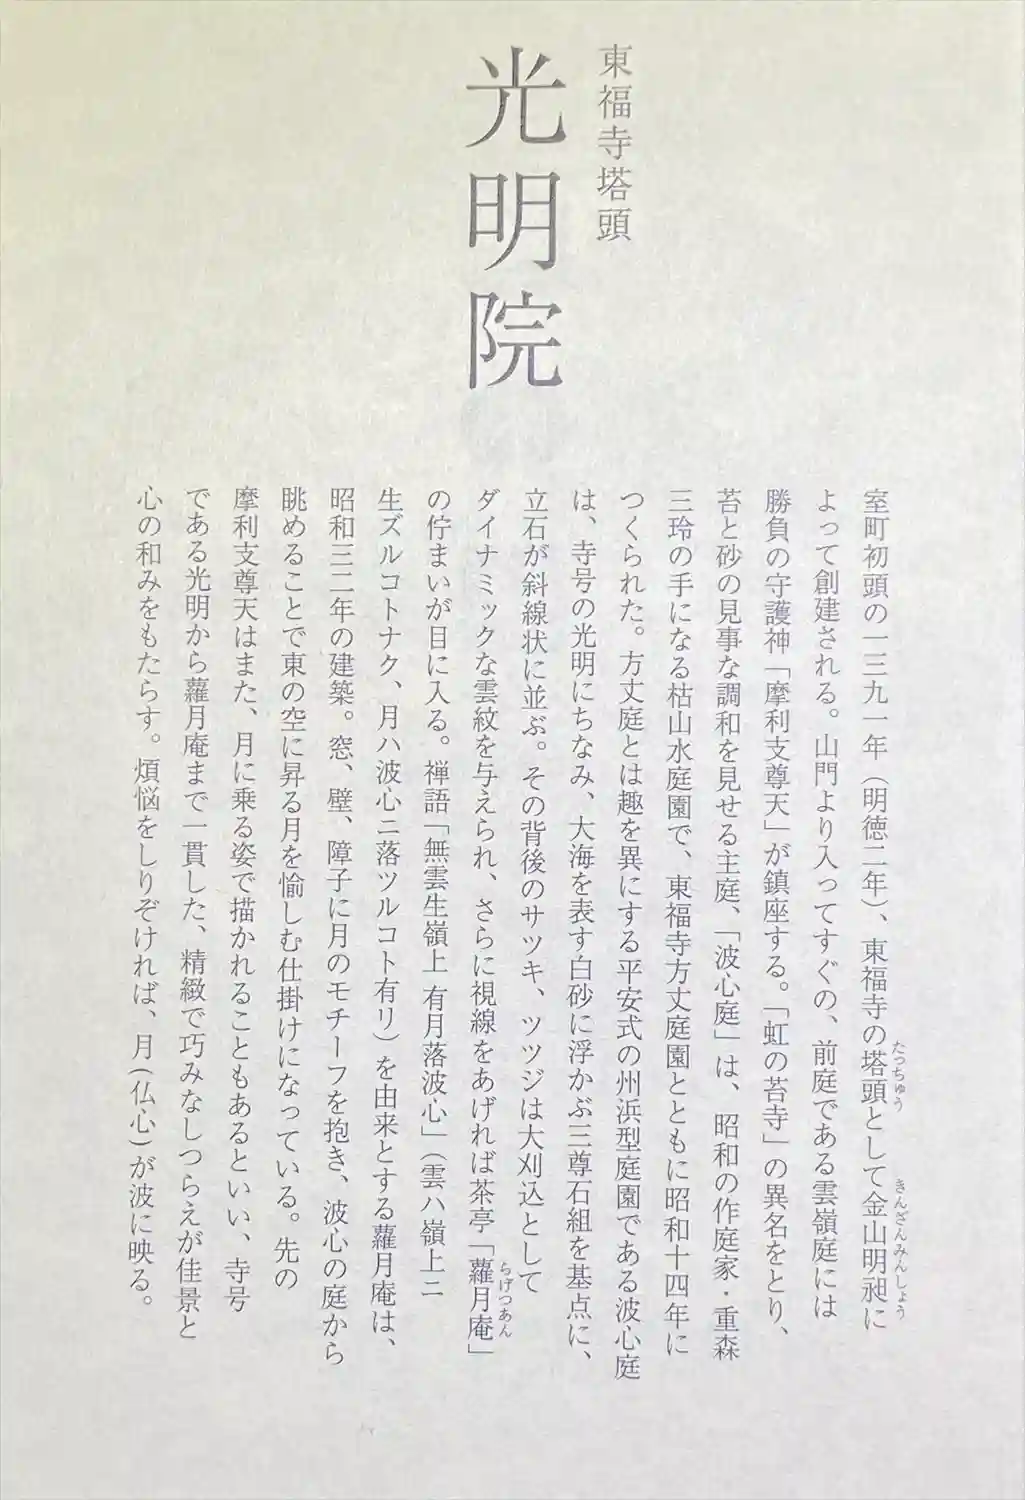 東福寺塔頭
光明院
室町初頭の一三九一年（明徳二年）、東福寺の塔頭として金山明昶に
たっちゅう
きんざんみんしょう
よって創建される。山門より入ってすぐの、前庭である雲嶺庭には
勝負の守護神「摩利支尊天」が鎮座する。「虹の苔寺」の異名をとり、
苔と砂の見事な調和を見せる主庭、「波心庭」は、昭和の作庭家・重森
三玲の手になる枯山水庭園で、東福寺方丈庭園とともに昭和十四年に
つくられた。方丈庭とは趣を異にする平安式の州浜型庭園である波心庭
は、寺号の光明にちなみ、大海を表す白砂に浮かぶ三尊石組を基点に、
立石が斜線状に並ぶ。その背後のサツキ、ツツジは大刈込として
ダイナミックな雲紋を与えられ、さらに視線をあげれば茶亭「蘿月庵」
らげつあん
の佇まいが目に入る。禅語「無雲生嶺上 有月落波心」（雲ハ嶺上ニ
生ズルコトナク、月ハ波心ニ落ツルコト有リ）を由来とする蘿月庵は、
昭和三二年の建築。窓、壁、障子に月のモチーフを抱き、波心の庭から
眺めることで東の空に昇る月を愉しむ仕掛けになっている。先の
摩利支尊天はまた、月に乗る姿で描かれることもあるといい、寺号
である光明から蘿月庵まで一貫した、精緻で巧みなしつらえが佳景と
心の和みをもたらす。煩悩をしりぞければ、月（仏心）が波に映る。